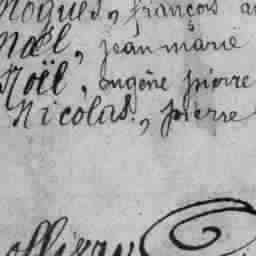 Nogues, françois
Noël, jean marie
Noël, eugène pierre
Nicolas, pierre
ollivry